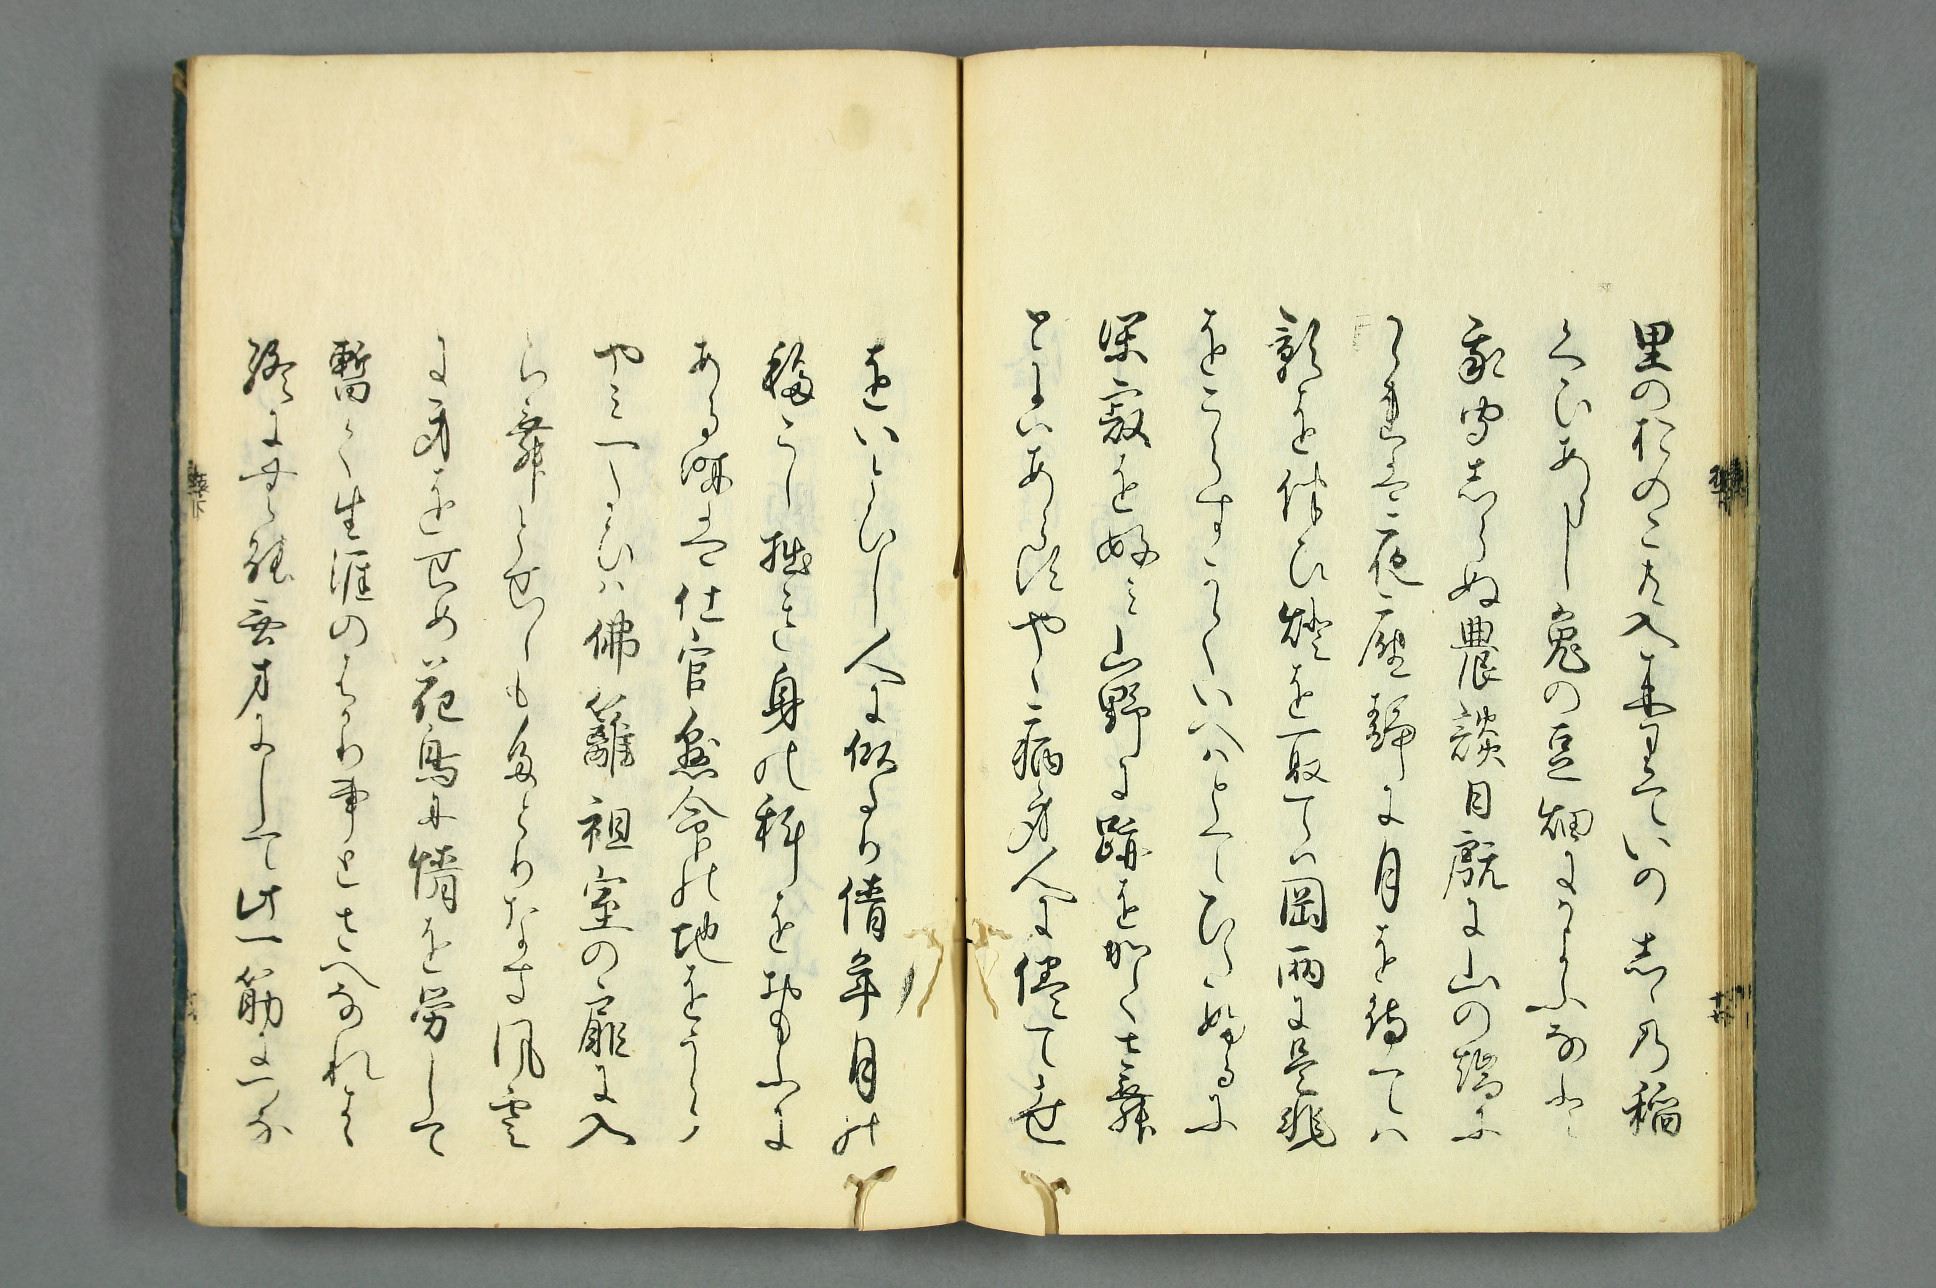 里のおのこ共入来りていのしゝの稲
くひあらし兎の豆畑にかよふなと
我聞しらぬ農談日既に山の端に
かゝれは夜座静に月を待ては
影を伴ひ燈を取ては罔両に是非
をこらすかくいへはとてひたふるに
深寂を好ミ山野に跡をかくさむ
とにはあらすやゝ病身人に倦て世
をいとひし人に似たり倩年月の
移こし拙き身の科をおもふに
ある時は仕官懸命の地をうら
やミ一たひは佛籬祖室の扉に入
らむとせしもたとりなき風雲
に身をせめ花鳥に情を労して
暫く生涯のはかり事とさへなれは
終に無能無才にして此一筋につな